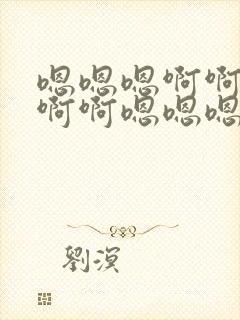 嗯嗯嗯啊啊
啊啊嗯嗯嗯
劉溟